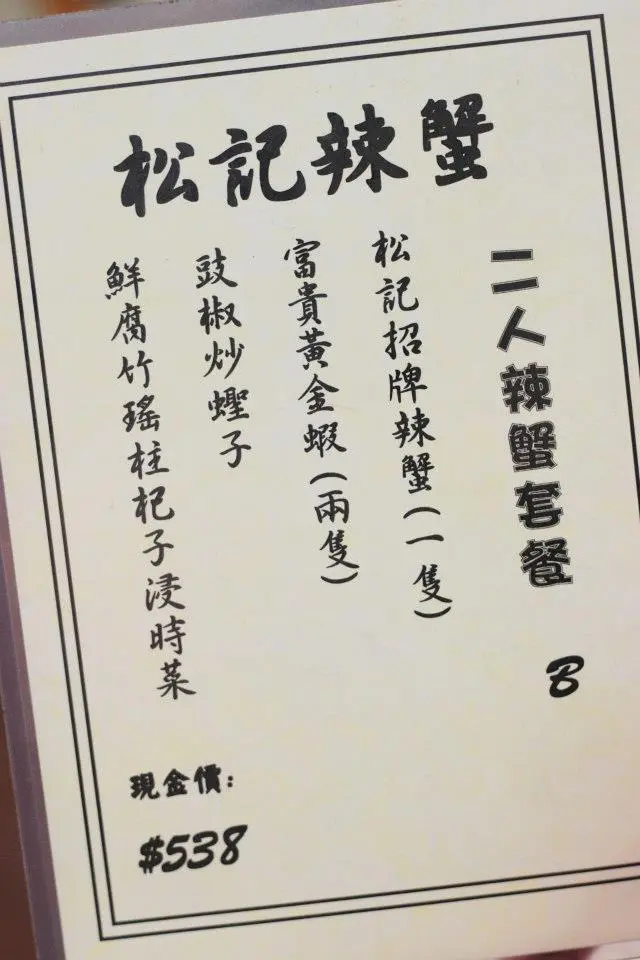 松記辣蟹
二人辣蟹套餐 B
松記招牌辣蟹(一隻)
富貴黃金蝦(兩隻)
豉椒炒蟶子
鮮腐竹瑤柱杞子浸時菜
現金價:
$538